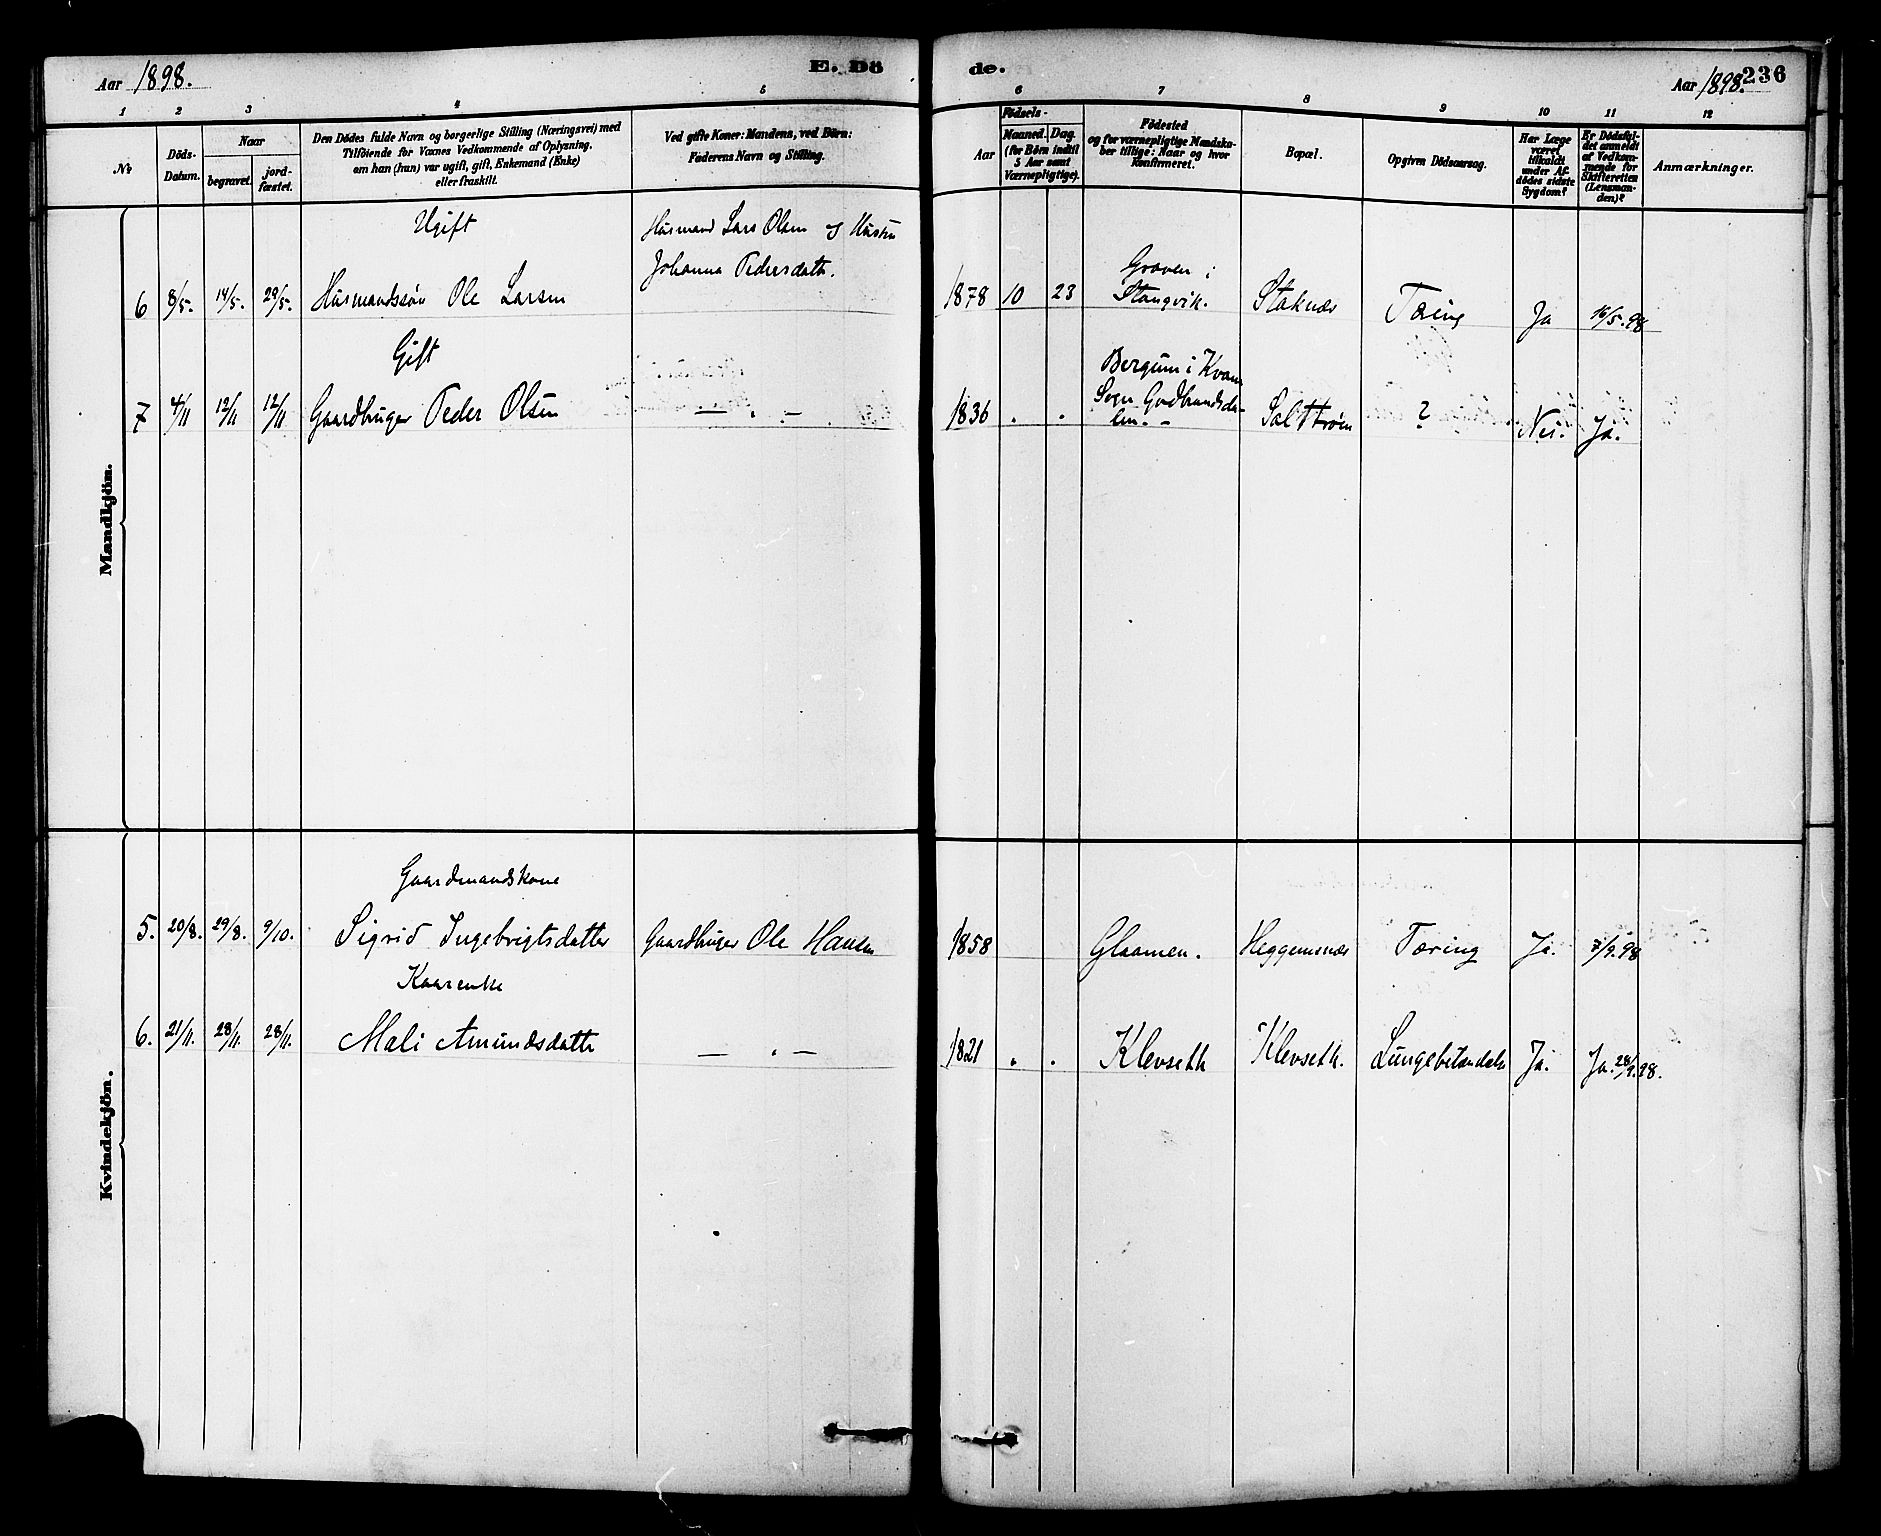 Aar 1898.
E. Dö
de.
Aar 1898.
236
1 2 3 4 5
6 7 8 9 10 11 12
Nr
Döds-
Datum.
Naar
begravet.
jord-
fæstet.
Den Dödes fulde Navn og borgerlige Stilling (Næringsvei) med
Tilföiende for Voxnes Vedkommende af Oplysning,
om han (hun) var ugift, gift, Enkemand (Enke)
eller fraskilt.
Ved gifte Koner: Mandens, ved Börn:
Faderens Navn og Stilling.
Födsels-
Aar
Maaned.
Dag.
(for Börn indtil
5 Aar samt
Værnepligtige).
Födested
og for værnepligtige Mandska-
ber tillige: Naar og hvor
Konfirmeret.
Bopæl.
Opgiven Dödsaarsag.
Har Læge
været
tilkaldt
under Af-
dödes sidste
Sygdom?
Er Dödsfal-
det anmeldt
af Vedkom-
mende for
Skifteretten
(Lensman-
den)?
Anmærkninger.
Mandkjön.
Ugift
Husmand Lars Olsen og Hustru
Johanna Pedersdatr.
6 8/5. 14/5. 29/5. Husmandssön Ole Larsen
1878 10 23
Graven i
Stangvik.
Staknæs Tæring Ja 16/5.98
Gift
7 4/11 12/11 12/11 Gaardbruger Peder Olsen — " —
1836 " "
Bergum i Kvam
Sogn Gudbrandsda-
len. -
Saltstrøm ? Nei. Ja.
Kvindekjön.
Gaardmandskone
5. 20/8. 29/8. 9/10. Sigrid Ingebrigtsdatter Gaardbruger Ole Hansen
1858 Glaamen. Heggemsnæs Tæring Ja. 7/9.98
Kaarenke
6. 21/11. 28/11. 28/11. Mali Amundsdatter — " —
1821 " " Klevseth Klevseth. Lungebetændelse Ja. Ja.